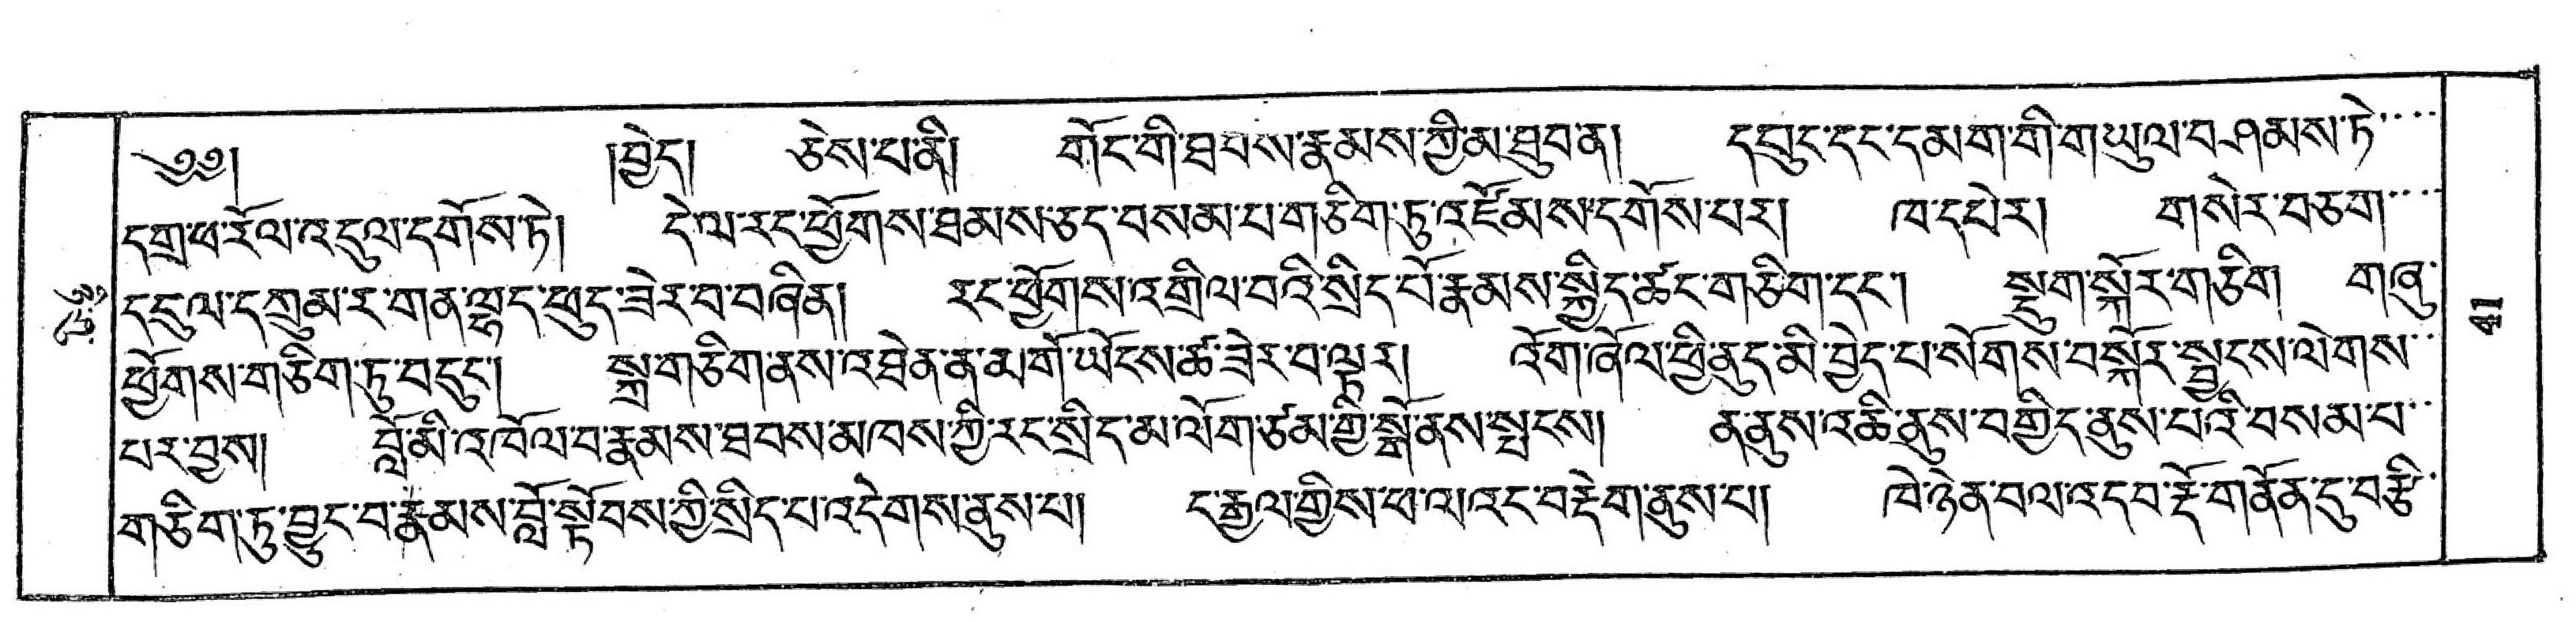 ༄༅། །བྱེད། ཅེས་པ་ནི། གོང་གི་ཐབས་རྣམས་ཀྱི་མ་ཐུབ་ན། དཔུང་དང་དམག་གི་གཡུལ་བཤམས་ཏེ་
དགྲ་ཕ་རོལ་འདུལ་དགོས་ཏེ། དེ་ལ་རང་ཕྱོགས་ཐམས་ཅད་བསམ་པ་གཅིག་ཏུ་འཛོམས་དགོས་པར། ཁ་དཔེར། གསེར་བཅག་
དངུལ་དཀྲུམ་ར་གན་ལྷད་ཕུད་ཟེར་བ་བཞིན། རང་ཕྱོགས་འགྲིལ་བའི་སྲིད་པོ་རྣམས་སྐྱིད་ཚང་གཅིག་དང་། སྡུག་སྐོར་གཅིག གཞུ་
ཕྱོགས་གཅིག་ཏུ་བདུང་། སྐྲ་གཅིག་ནས་འཐེན་ན་མགོ་ཡོངས་ཚ་ཟེར་བ་ལྟར། འོག་ཞོལ་ཕྱི་ནུད་མི་བྱེད་པ་སོགས་བསྐོར་སྦྱངས་ལེགས་
པར་བྱས། བློ་མི་འཁོལ་བ་རྣམས་ཐབས་མཁས་ཀྱི་རང་སྲིད་མ་ལོག་ཙམ་གྱི་སྒོ་ནས་སྤངས། ན་ནུས་འཆི་ནུས་བགྱིད་ནུས་པའི་བསམ་པ་
གཅིག་ཏུ་བྱུང་བ་རྣམས་བློ་སྟོབས་ཀྱི་སྲིད་པ་འདེགས་ནུས་པ། ང་རྒྱལ་གྱིས་ཕ་ལ་འང་བརྡེག་ནུས་པ། ཁེ་ཉེན་བལ་འདབ་རྡོ་གནོན་དུ་བརྩི་